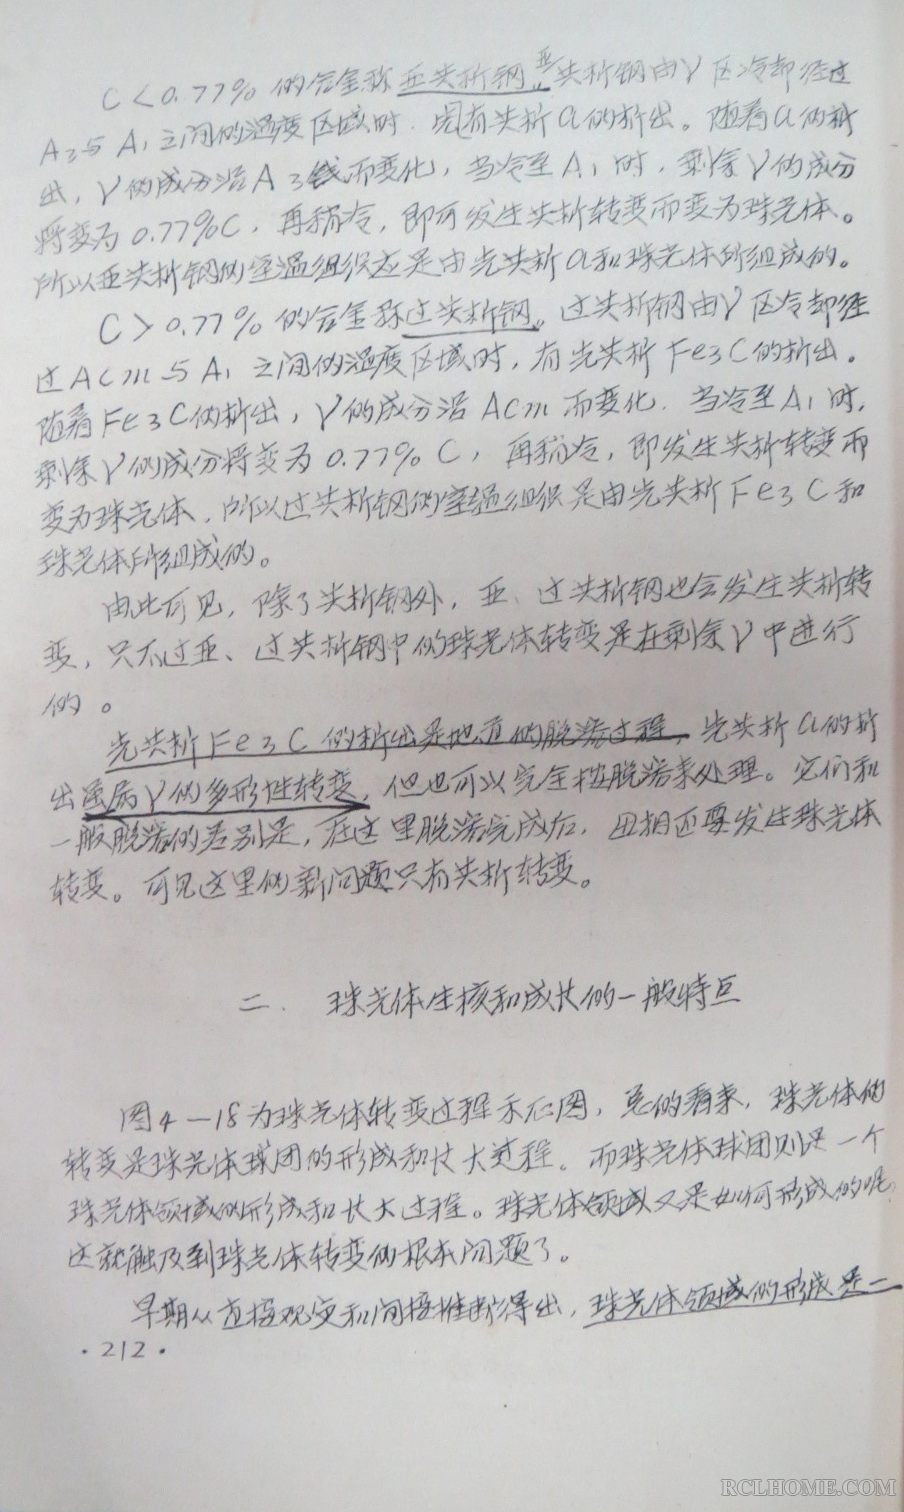 C<0.77%的合金称亚共析钢。亚共析钢由γ区冷却经过
A3与A1之间的温度区域时,先有共析α的析出。随着α的析
出,γ的成分沿A3线而变化,当冷至A1时,剩余γ的成分
将变为0.77%C,再稍冷,即可发生共析转变而变为珠光体。
所以亚共析钢的室温组织应是由先共析α和珠光体所组成的。
C>0.77%的合金称过共析钢。过共析钢由γ区冷却经
过Acm与A1之间的温度区域时,有先共析Fe3C的析出。
随着Fe3C的析出,γ的成分沿Acm而变化.当冷至A1时,
剩余γ的成分将变为0.77%C,再稍冷,即发生共析转变而
变为珠光体,所以过共析钢的室温组织是由先共析Fe3C和
珠光体所组成的。
由此可见,除了共析钢外,亚、过共析钢也会发生共析转
变,只不过亚、过共析钢中的珠光体转变是在剩余γ中进行
的。
先共析Fe3C的析出是地道的脱溶过程,先共析α的析
出虽属γ的多形性转变,但也可以完全按脱溶来处理。它们和
一般脱溶的差别是,在这里脱溶完成后,母相还要发生珠光体
转变。可见这里的新问题只有共析转变。
二.珠光体生核和成长的一般特点
图4-18为珠光体转变过程示意图,总的看来,珠光体的
转变是珠光体球团的形成和长大过程。而珠光体球团则是一个
珠光体领域的形成和长大过程。珠光体领域又是如何形成的呢?
这就触及到珠光体转变的根本问题了。
早期从直接观察和间接推断得出,珠光体领域的形成是一
·212·
RCLHOME.COM